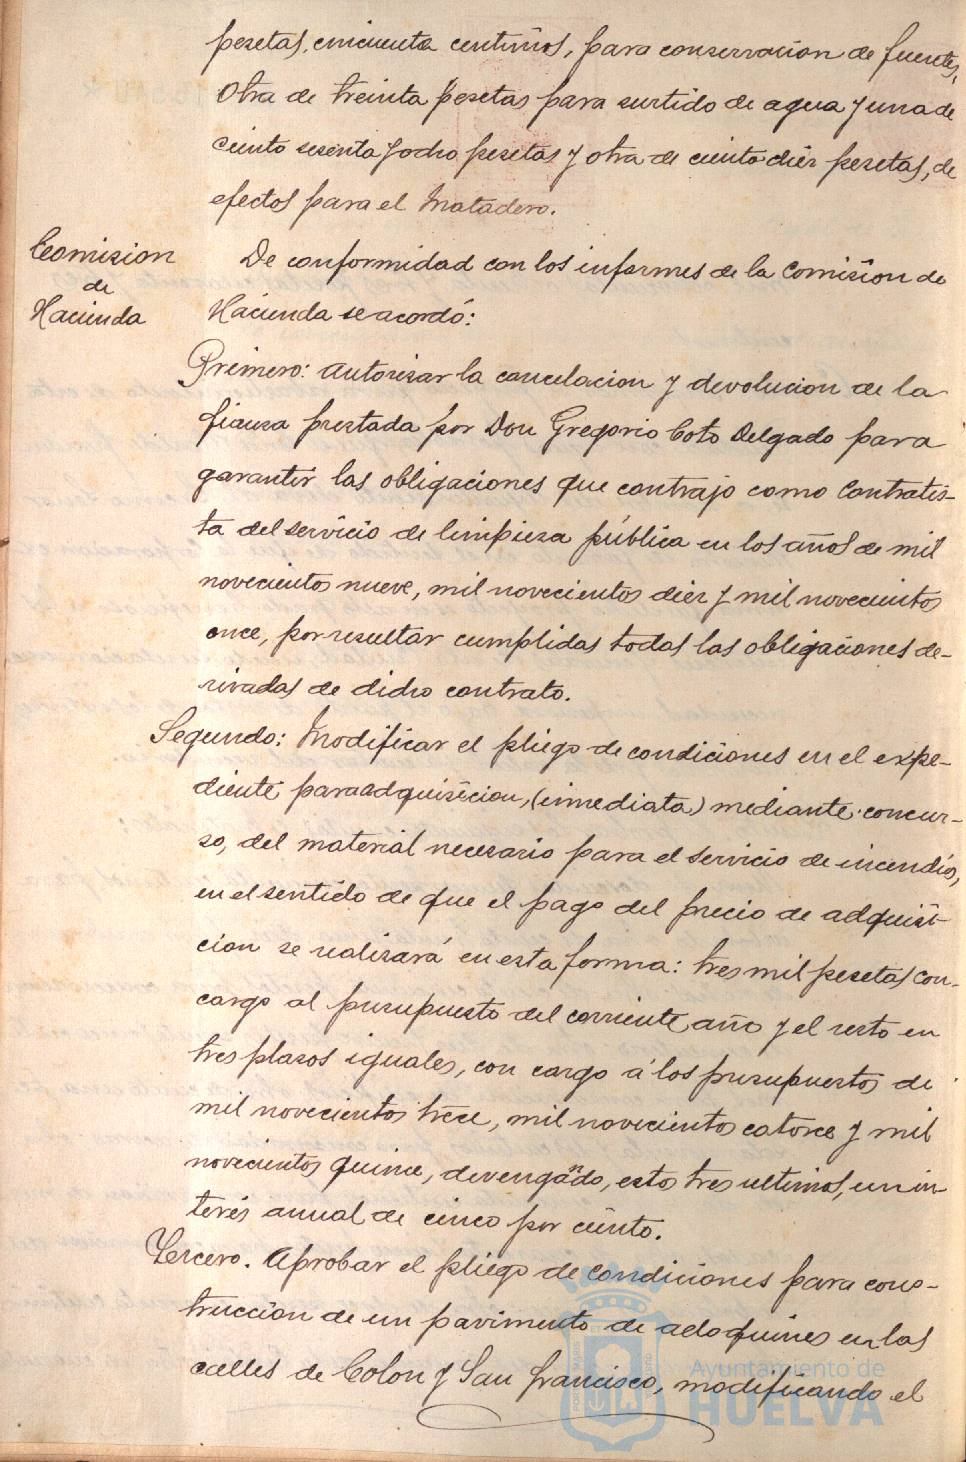 pesetas, cincuenta centimos, para conservacion de fuentes,
Otra de treinta pesetas para surtido de agua y una de
ciento sesenta y ocho pesetas y otra de ciento diez pesetas, de
efectos para el Matadero.
Comision
de
Hacienda
De conformidad con los informes de la Comision de
Hacienda se acordó:
Primero: autorizar la cancelacion y devolucion de la
fianza prestada por Don Gregorio Coto Delgado para
garantir las obligaciones que contrajo como Contratis-
ta del servicio de limpieza pública en los años de mil
novecientos nueve, mil novecientos diez y mil novecientos
once, por resultar cumplidas todas las obligaciones de-
rivadas de dicho contrato.
Segundo: Modificar el pliego de condiciones en el expe-
diente para adquisicion, (inmediata) mediante concur-
so, del material necesario para el servicio de incendios,
en el sentido de que el pago del precio de adquisi-
cion se realizará en esta forma: tres mil pesetas con-
cargo al presupuesto del corriente año y el resto en
tres plazos iguales, con cargo á los presupuestos de
mil novecientos trece, mil novecientos catorce y mil
novecientos quince, devengando, estos tres ultimos, un in
terés anual de cinco por ciento.
Tercero. Aprobar el pliego de condiciones para cons-
truccion de un pavimento de adoquines en las
calles de Colon y San Francisco, modificando el
Ayuntamiento de
HUELVA